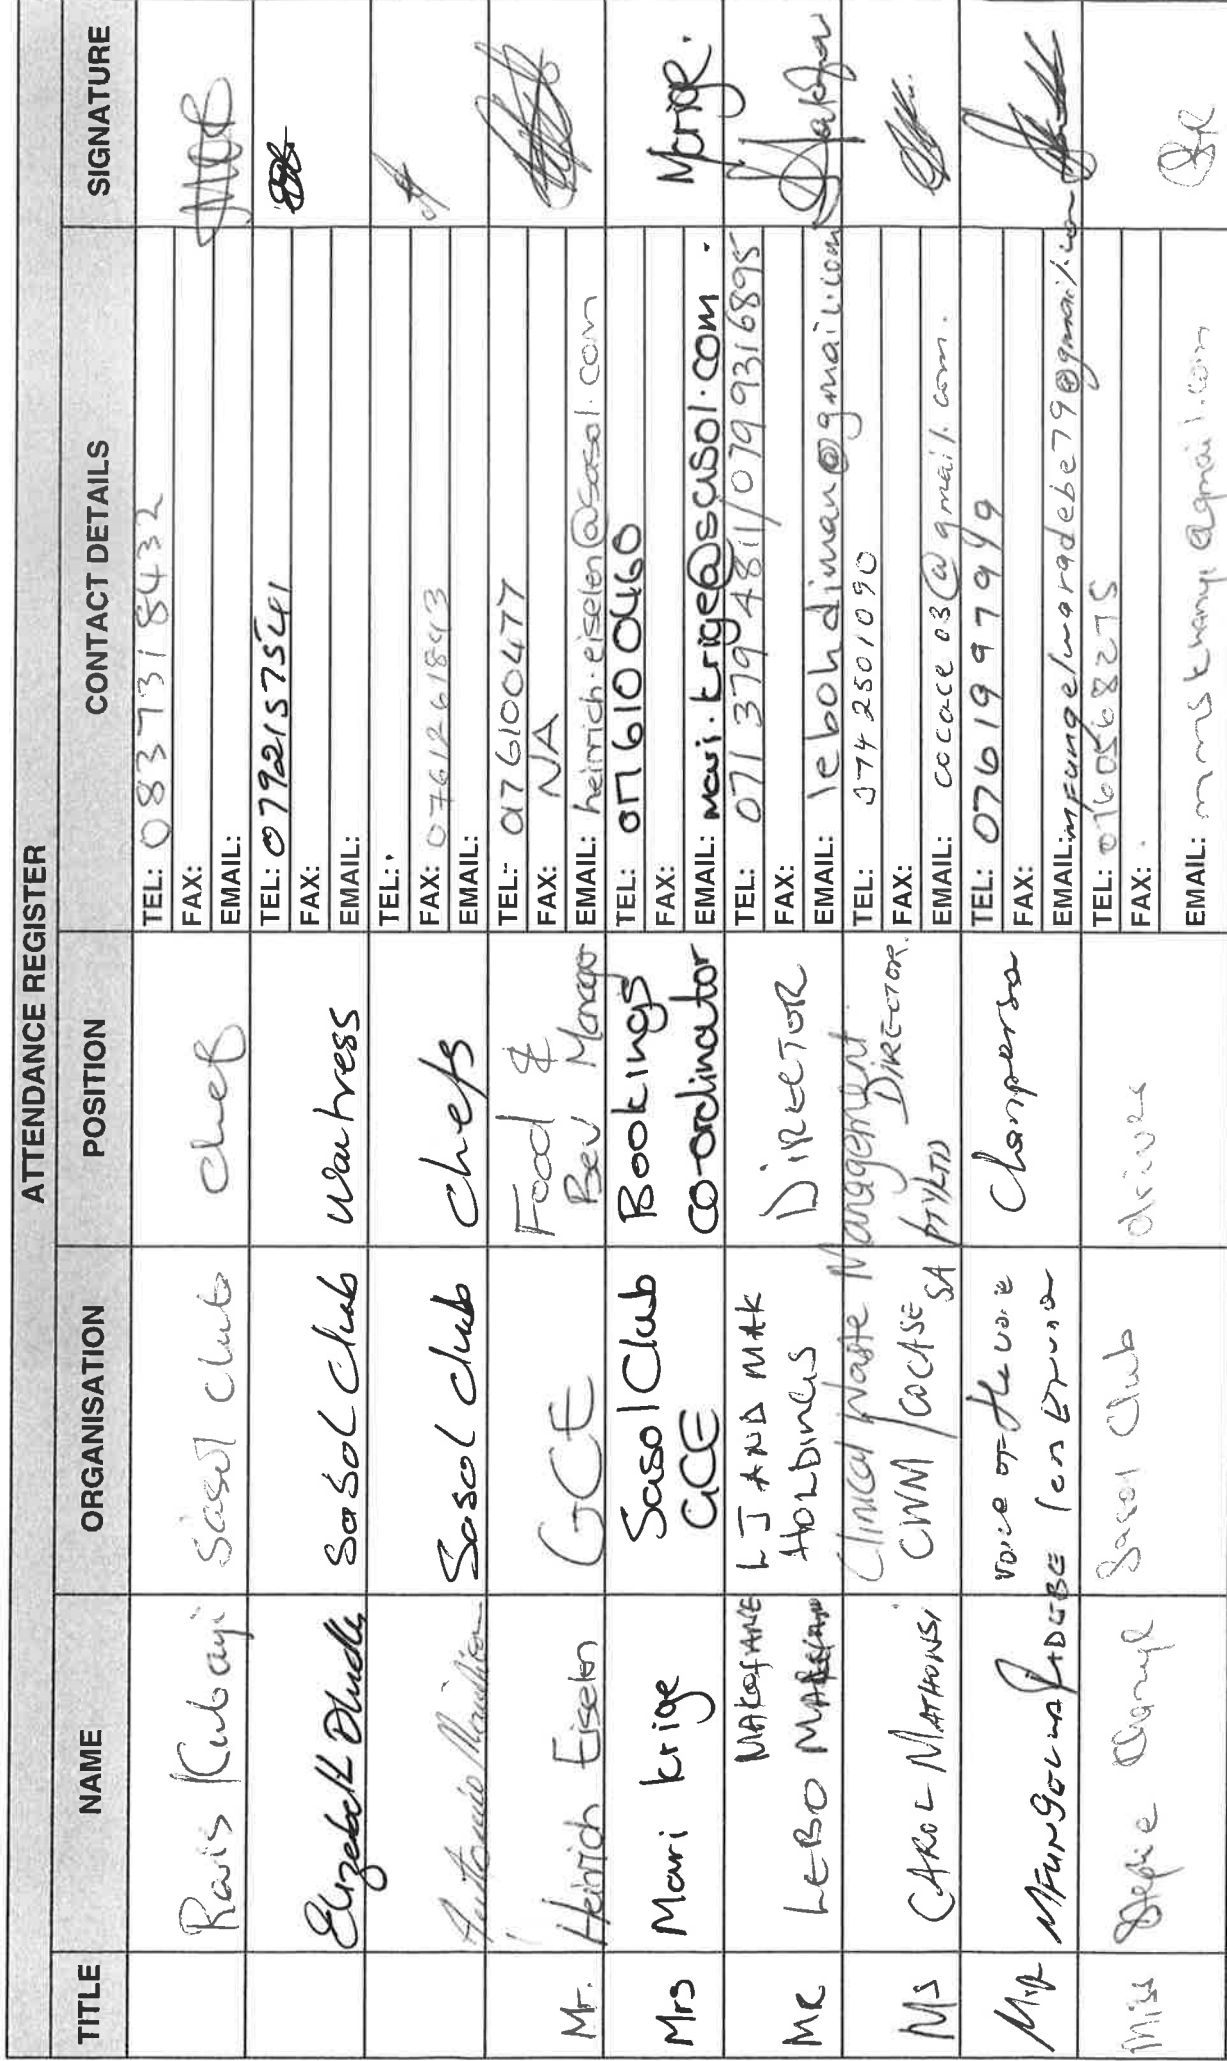 ATTENDANCE REGISTER
TITLE NAME ORGANISATION POSITION CONTACT DETAILS SIGNATURE
Ravis Kubayi Sasol Club chef
TEL: 0837318432
FAX:
EMAIL:
Elizabeth Dhudhla SaSoL Club Waitress
TEL: 0792157541
FAX:
EMAIL:
Antonio SasoL Club chefs
TEL:
FAX: 0761261843
EMAIL:
Mr. Heinrich Eiselen GCE Food &
Bev Manager
TEL: 0176100477
FAX: NA
EMAIL: heinrich.eiselen@sasol.com
Mrs Mari Krige Sasol Club
GCE
Bookings
co-ordinator
TEL: 017 610 0460
FAX:
EMAIL: mari.krige@sasol.com.
Krige.
MR LEBO
MAKOFANE
LJ AND MAK
HOLDINGS
DIRECTOR
TEL: 071 379 4811/0799316895
FAX:
EMAIL: lebohdiman@gmail.com
MS CAROL MATHONSI
Clinical Waste Management
CWM /COCASE SA PTYLTD
DIRECTOR.
TEL: 0742501090
FAX:
EMAIL: cocace03@gmail.com.
RADEBE
Voice of the voice
Chairperson
TEL: 0761997949
FAX:
EMAIL: mfungelwaradebe79@gmail.com
Miss Sasol Club driver
TEL: 0760568275
FAX:
EMAIL: @gmail.com